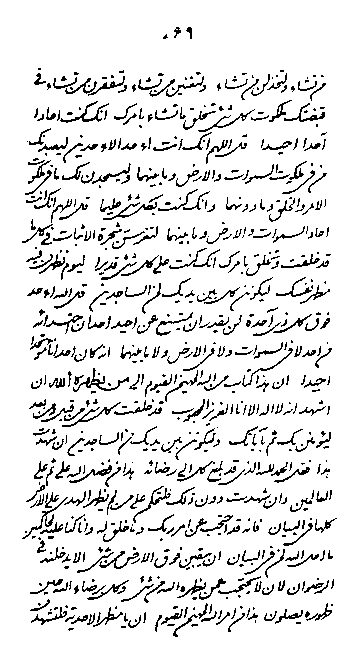 ٠٦٩
من تشاء ولتخذلن من تشاء ولتغنین من تشاء ولتفقرن من تشاء فی
قبضتک ملکوت کل شیء تخلق ما تشاء بامرک انک کنت احادا
آحدا احیدا قل اللهم انک انت احد الاحدین لیسجدنک
من فی ملکوت السموات والارض وما بینهما ولیسجدن لک ما فی ملکوت
الامر والخلق وما دونهما وانک کنت بکل شیء علیما قل اللهم انک انت
احاد السموات والارض وما بینهما لتغرسن شجرة الاثبات فی کل ما
قد خلقت وتخلق بامرک انک کنت علی کل شیء قدیرا لیوم تظهرن فیه
مظهر نفسک لیکونن کل بین یدیک لمن الساجدین قل الله احد
فوق کل ذی آحدة لن یقدر ان یمتنع عن احید احدانه من احد الله
من احد لا فی السموات ولا فی الارض ولا ما بینهما انه کان احادا آحدا
احیدا ان هذا کتاب من الله المهیمن القیوم الی من یظهره الله ان
اشهد انه لا اله الا انا العزیز المحبوب قد خلقت کل شیء من قبل ومن بعد
لیؤمنن بک ثم بآیاتک ولیکونن بین یدیک لمن الساجدین ان شهدت
بذا فقل الحمد لله الذی قد بلغ کل الی رضائه هذا من فضل الله علی ثم علی
العالمین وان شهدت دون ذلک فلتحکم علی من لم یظهر الهدی علی الارض
کلها من البیان فانه قد احتجب عن امر ربک وما خلق له وانا کنا علی
ما احد الله لمن فی البیان ان یبقین فوق الارض من شیء الا یدخلنه فی
الرضوان لان لا یحتجب عن یظهره الله من شیء وکل برضاء الله حین
ظهوره یصلون هذا من امر الله المهیمن القیوم ان یا مظهر الاحدیة فلتشهدن